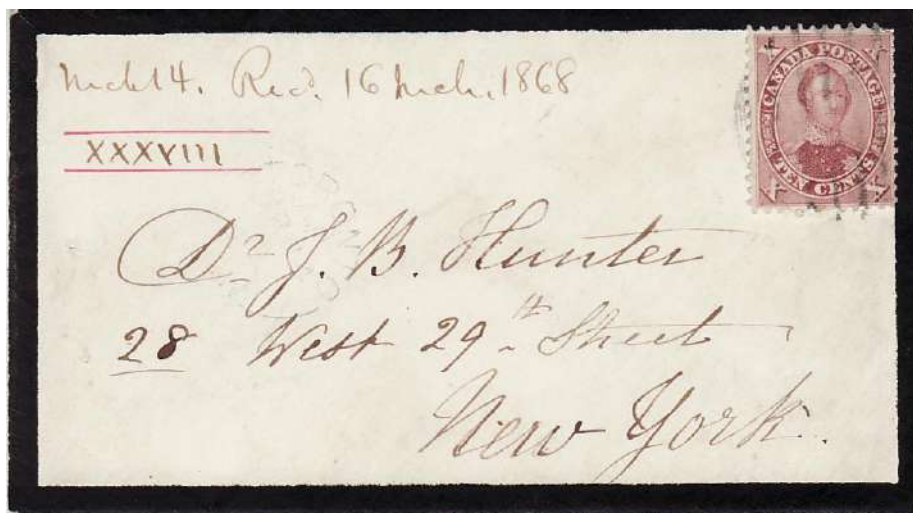 Mch 14. Recd. 16 Mch. 1868
XXXVIII
CANADA POSTAGE
TEN CENTS
X X X X
Dr J. B. Hunter
28 West 29th Street
New York.